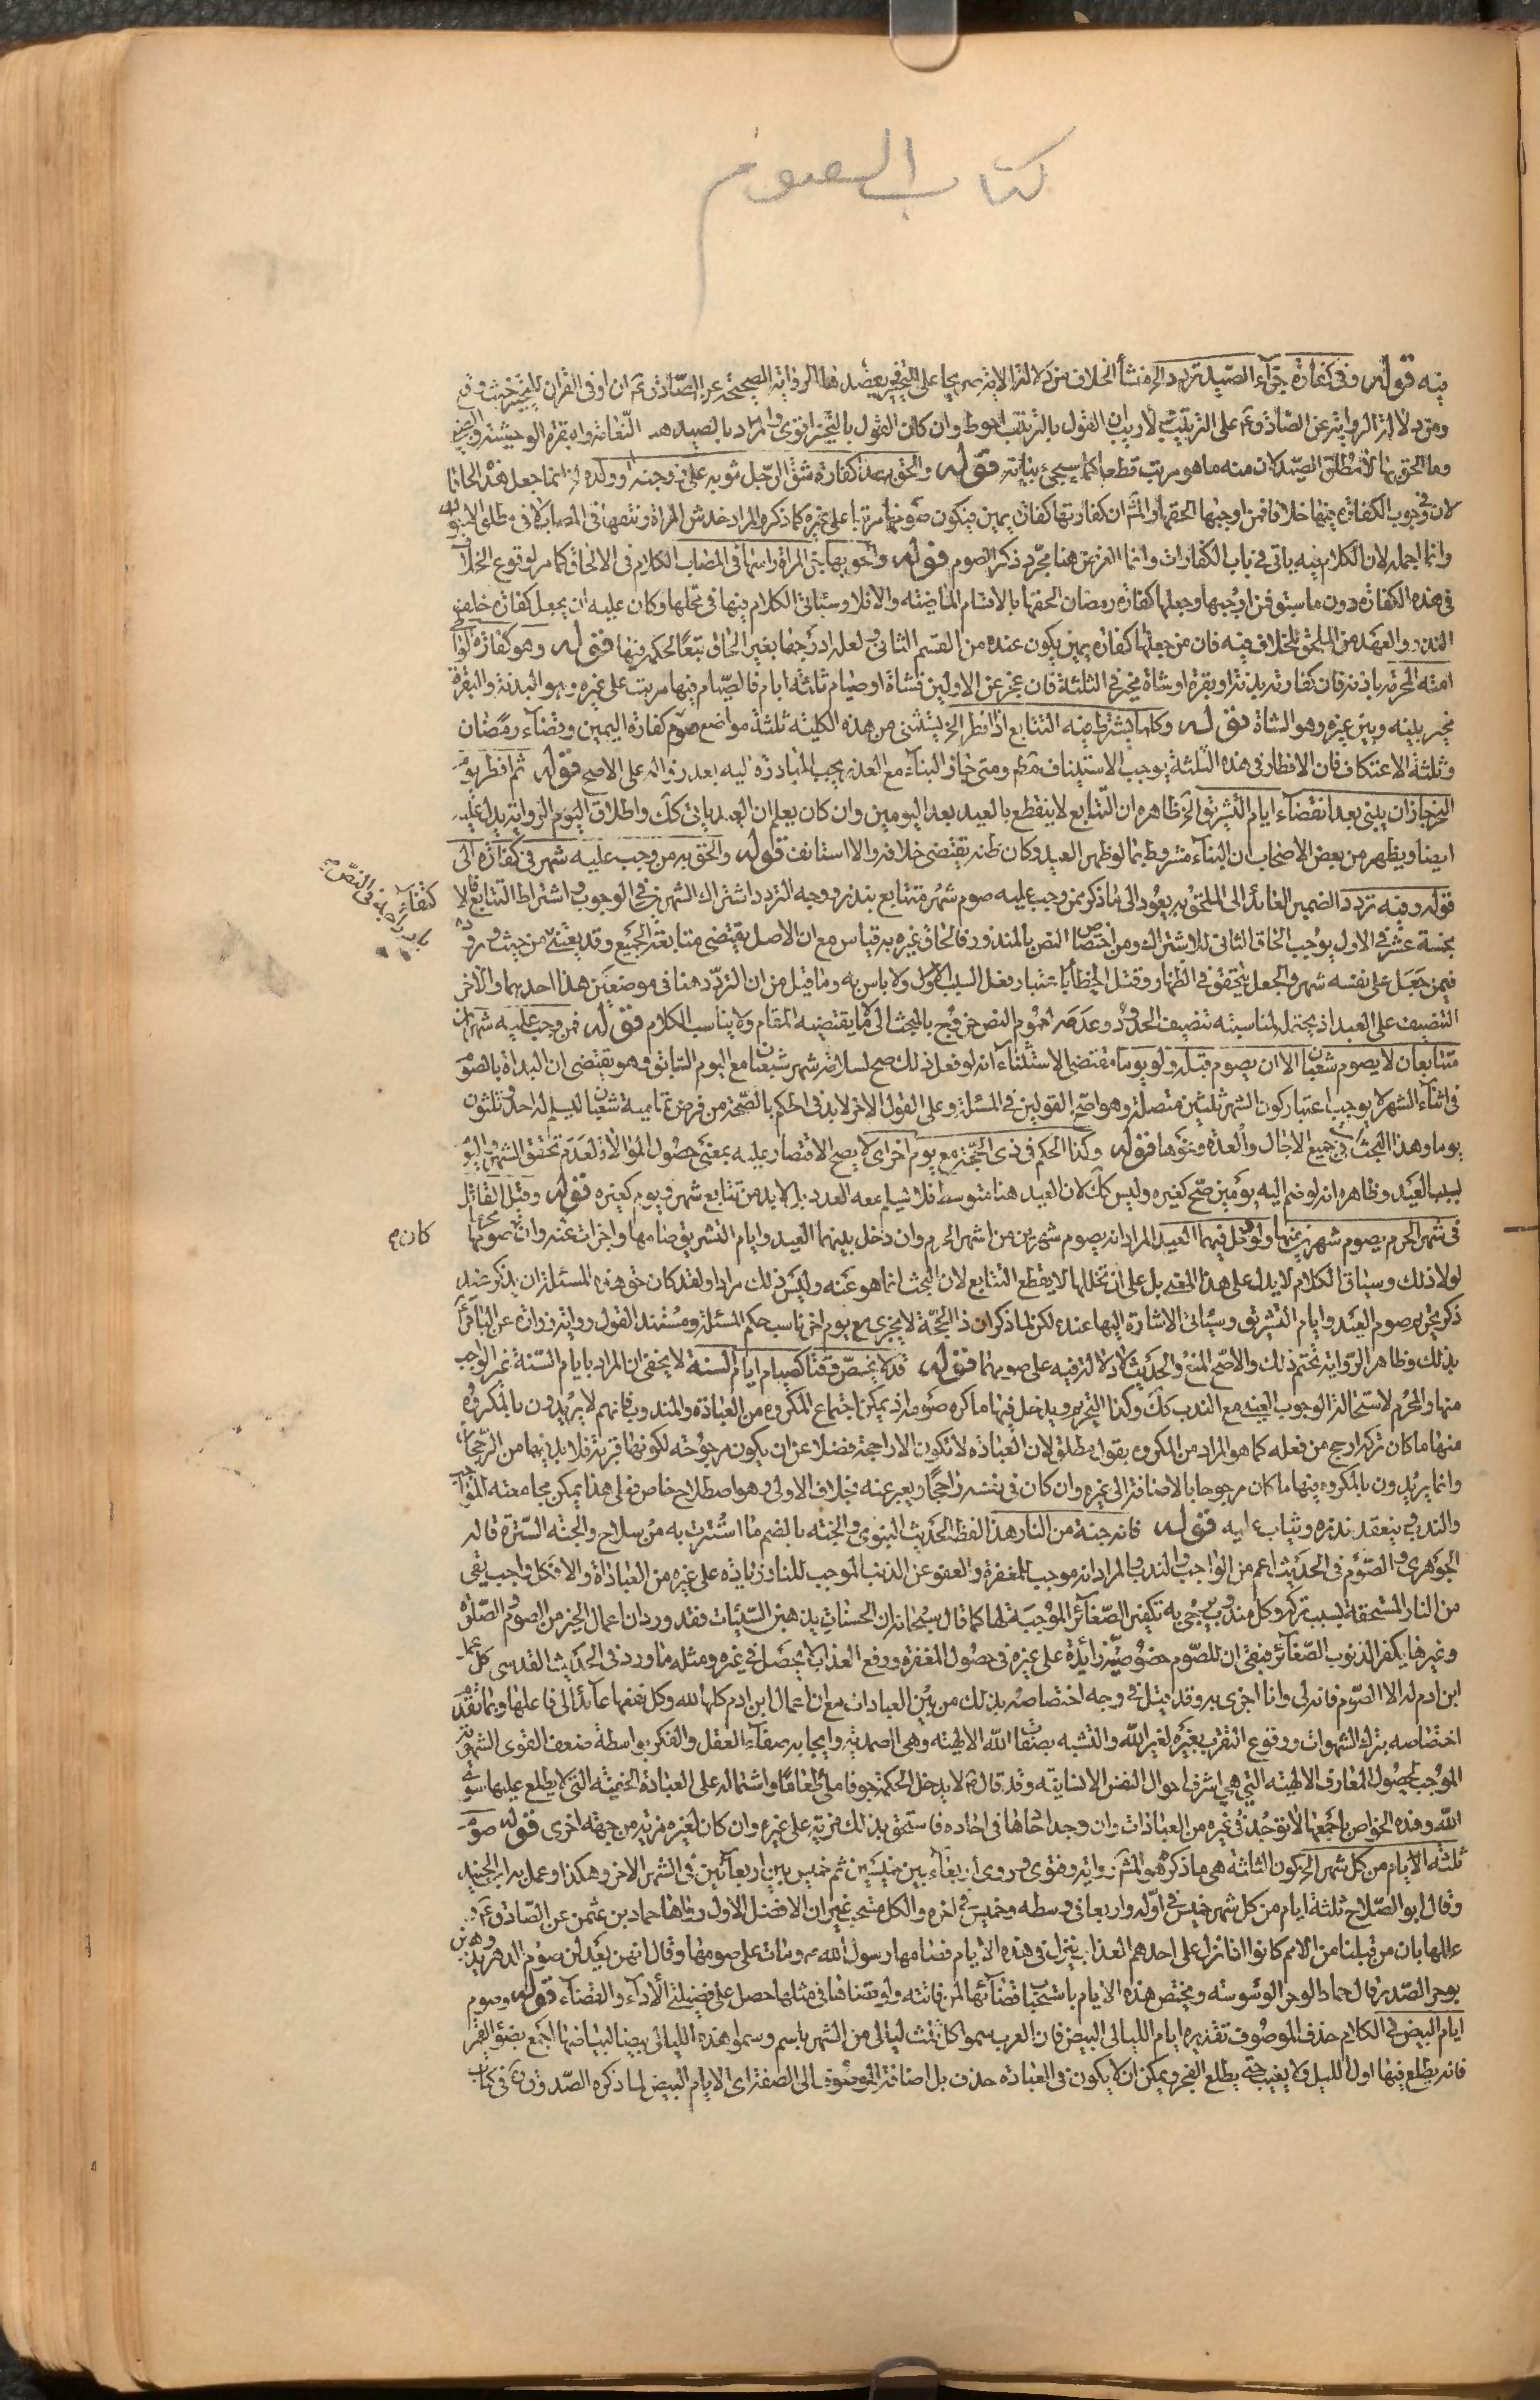 كتاب الصوم
فيه قوله وفى كفارة جزاء الصيد تردد الخ منشأ الخلاف من دلالة الاية صريحا على التخيير يعضدها الرواية الصحيحة عن الصادق ع ان او فى القران للتخيير حيث وقع
ومن دلالة الرواية عن الصادق ع على الترتيب ولا ريب ان القول بالترتيب احوط وان كان القول بالتخيير اقوى والمراد بالصيد هنا النعامة وبقرة الوحش والظبى
وما الحق بها لا مطلق الصيد لان منه ما هو مرتب قطعا كما سيجئ بيانه قوله والحق بهذه كفارة شق الرجل ثوبه على زوجته او ولده انما جعل هذه الحاقا
لان فى وجوب الكفارة فيهما خلافا فمن اوجبها الحقها والمش ان كفارتها كفارة يمين فيكون صومها مرتبا على غيره كما ذكره والمراد خدش المراة ونتفها فى المصاب لا فى مطلق
وانما اجمله لان الكلام فيه ياتى فى باب الكفارات وانما الغرض هنا مجرد ذكر الصوم قوله والحق بها جز المراة راسها فى المصاب الكلام فى الالحاق كما مر لوقوع الخلاف
فى هذه الكفارة دون ما سبق فمن اوجبها وجعلها كفارة رمضان الحقها بالاقسام الماضية والا فلا وسياتى الكلام فيها فى محلها وكان عليه ان يجعل كفارة خلف
النذر والعهد من الملحق للخلاف فيه فان من جعلها كفارة يمين يكون عنده من القسم الثانى ولعله ادرجها بغير الحاق تبعا لحكمه فيها قوله وهو كفارة الواطى
امته المحرمة باذنه فان كفارته بدنة او بقرة او شاة مخير فى الثلثة فان عجز عن الاولين فشاة او صيام ثلثة ايام فالصيام فيها مرتب على غيره وهو البدنة والبقرة
مخير بينه وبين غيره وهو الشاة قوله وكلما يشترط فيه التتابع اذا افطر الخ يستثنى من هذه الكلية ثلثة مواضع صوم كفارة اليمين وقضاء رمضان
وثلثة الاعتكاف فان الافطار فى هذه الثلثة يوجب الاستيناف مطم ومتى جاز البناء مع العذر يجب المبادرة اليه بعد زواله على الاصح قوله ثم افطر يوم
النحر جاز ان يبنى بعد انقضاء ايام التشريق الخ ظاهره ان التتابع لا ينقطع بالعيد بعد اليومين وان كان يعلم ان العيد ياتى كك واطلاق اليوم الرواية يدل عليه
ايضا ويظهر من بعض الاصحاب ان البناء مشروط بما لو ظهر العيد وكان ظنه يقتضى خلافه والا استانف قوله والحق به من وجب عليه شهر فى كفارة الى
قوله وفيه تردد الضمير العائد الى الملحق به يعود الى ما ذكر ممن وجب عليه صوم شهر متتابع بنذر ووجه التردد اشتراك الشهرين فى الوجوب واشتراط التتابع
بخمسة عشر فى الاول يوجب الحاق الثانى للاشتراك ومن اختصاص النص بالمنذور فالحاق غيره به قياس مع ان الاصل يقتضى متابعة الجميع وقد يقسم من حيث
فيمن جعل على نفسه شهر والجعل يتحقق فى الظهار وقتل الخطأ باعتبار فعل السبب الاول ولا باس به وما قيل من ان التردد هنا فى موضعين هذا احدهما والاخر
التنصيف على العبد اذ يحتمل لمناسبته تنصيف الحدود وعدمه لعموم النص خروج بالبحث الى ما لا يقتضيه المقام ولا يناسب الكلام قوله فمن وجب عليه شهران
متتابعان لا يصوم شعبان الا ان يصوم قبله ولو يوما مقتضى الاستثناء انه لو فعل ذلك صح لسلامة شهر شعبان مع اليوم السابق وهو يقتضى ان البداة بالصوم
فى اثناء الشهر لا يوجب اعتبار كون الشهر ثلثين متصلة وهو اصح القولين فى المسئلة وعلى القول الاخر لا بد فى الحكم بالصحة من فرض تمامية شعبان ليسلم له احد وثلثون
يوما وهذا البحث ات فى جميع الاجال والعدة ونحوها قوله وكذا الحكم فى ذى الحجة مع يوم اخر اى لا يصح الاقتصار عليه بمعنى حصول الموالاة لعدم تحقق الشهر واليوم
بسبب العيد وظاهره انه لو ضم اليه يومين صح كغيره وليس كك لان العيد هنا متوسط فلا يسلم معه العدد بل لا بد من تتابع شهر ويوم كغيره قوله وقيل القاتل
فى شهر الحرم يصوم شهرين منها ولو دخل فيهما العيد المراد انه يصوم شهرين من اشهر الحرم وان دخل بينهما العيد وايام التشريق صامها واجزات عنه وان كان صومها محرما
لولا ذلك وسياق الكلام لا يدل على هذا المعنى بل على ان تخللها لا يقطع التتابع لان البحث انما هو عنه وليس ذلك مرادا ولقد كان حق هذه المسئلة ان يذكر عند
ذكر تحريم صوم العيد وايام التشريق وسياتى الاشارة اليها عنده لكن لما ذكر ان ذا الحجة لا يجزى مع يوم اخر ناسب حكم المسئلة ومستند القول رواية زرارة عن الباقر ع
بذلك وظاهر الرواية تحتم ذلك والاصح المنع والحديث لا دلالة فيه على صومهما قوله قد لا يختص وقتا كصيام ايام السنة لا يخفى ان المراد بايام السنة غير الواجب
منها والمحرم لاستحالة الوجوب العينى مع الندب كك وكذا التحريم ويدخل فيها ما كره صومه اذ يمكن اجتماع المكروه من العبادة والمندوب فانهم لا يريدون بالمكروه
منها ما كان تركه ارجح من فعله كما هو المراد من المكروه بقول مطلق لان العبادة لا تكون الا راجحة فضلا عن ان يكون مرجوحة لكونها قربة فلا بد فيها من الرجحان
وانما يريدون بالمكروه فيها ما كان مرجوحا بالاضافة الى غيره وان كان فى نفسه راجحا ويعبر عنه بخلاف الاولى وهو اصطلاح خاص فعلى هذا يمكن مجامعته
والندب فينعقد نذره ويثاب عليه قوله فانه جنة من النار هذا لفظ الحديث النبوى والجنة بالضم ما استترت به من سلاح والجنة السترة قاله
الجوهرى والصوم فى الحديث اعم من الواجب والندب والمراد انه موجب للمغفرة والعفو عن الذنب الموجب للنار زيادة على غيره من العبادات والا فكل واجب يقى
من النار المستحقة بسبب تركه وكل مندوب يرجى به تكفير الصغائر الموجبة لها كما قال سبحانه ان الحسنات يذهبن السيئات فقد ورد ان اعمال الخير من الصوم والصلوة
وغيرها يكفر الذنوب الصغائر فبقى ان للصوم خصوصية زائدة على غيره فى حصول المغفرة ورفع العذاب لا يحصل فى غيره ومثله ما ورد فى الحديث القدسى كل عمل
ابن ادم له الا الصوم فانه لى وانا اجزى به وقد قيل فى وجه اختصاصه بذلك من بين العبادات مع ان اعمال ابن ادم كلها لله وكل نفعها عائد الى فاعلها وبما تقدم
اختصاصه بترك الشهوات ووقوع التقرب بغيره لغير الله والتشبه بصفات الله الالهية وهى الصمدية وايجابه صفاء العقل والفكر بواسطة ضعف القوى الشهوية
الموجب لحصول المعارف الالهية التى هى اشرف احوال النفس الانسانية وقد قال ص لا يدخل الحكمة جوفا ملئ طعاما واشتماله على العبادة الخفية التى لا يطلع عليها سوى
الله وهذه الخواص باجمعها لا توجد فى غيره من العبادات وان وجد احادها فى احاده فاستحق بذلك مزية على غيره وان كان لغيره مزية من جهة اخرى قوله صوم
ثلثة الايام من كل شهر الخ كون الثلثة هى ما ذكره هو المش رواية وفتوى وروى اربعاء بين خميسين ثم خميس بين اربعائين فى الشهر الاخر وهكذا وعمل به ابن الجنيد
وقال ابو الصلاح ثلثة ايام من كل شهر خميس فى اوله واربعا فى وسطه وخميس فى اخره والكل مستحب غير ان الافضل الاول رواها حماد بن عثمن عن الصادق ع و
عللها بان من قبلنا من الامم كانوا اذا نزل على احدهم العذاب نزل فى هذه الايام فصامها رسول الله ص ومات على صومها وقال انهن يعدلن صوم الدهر ويذهبن
بوحر الصدر قال حماد الوحر الوسوسة ويختص هذه الايام باستحباب قضائها لمن فاتته ولو قضاها فى مثلها حصل على فضيلتى الاداء والقضاء قوله وصوم
ايام البيض فى الكلام حذف الموصوف تقديره ايام الليالى البيض فان العرب سموا كل ثلث ليالى من الشهر باسم وسموا هذه الليالى بيضا لبياضها اجمع بضوء القمر
فانه يطلع فيها اول الليل ولا يغيب حتى يطلع الفجر ويمكن ان لا يكون فى العبادة حذف بل اضافة الموصوف الى الصفة اى الايام البيض لما ذكره الصدوق ره فى كتاب
كان م